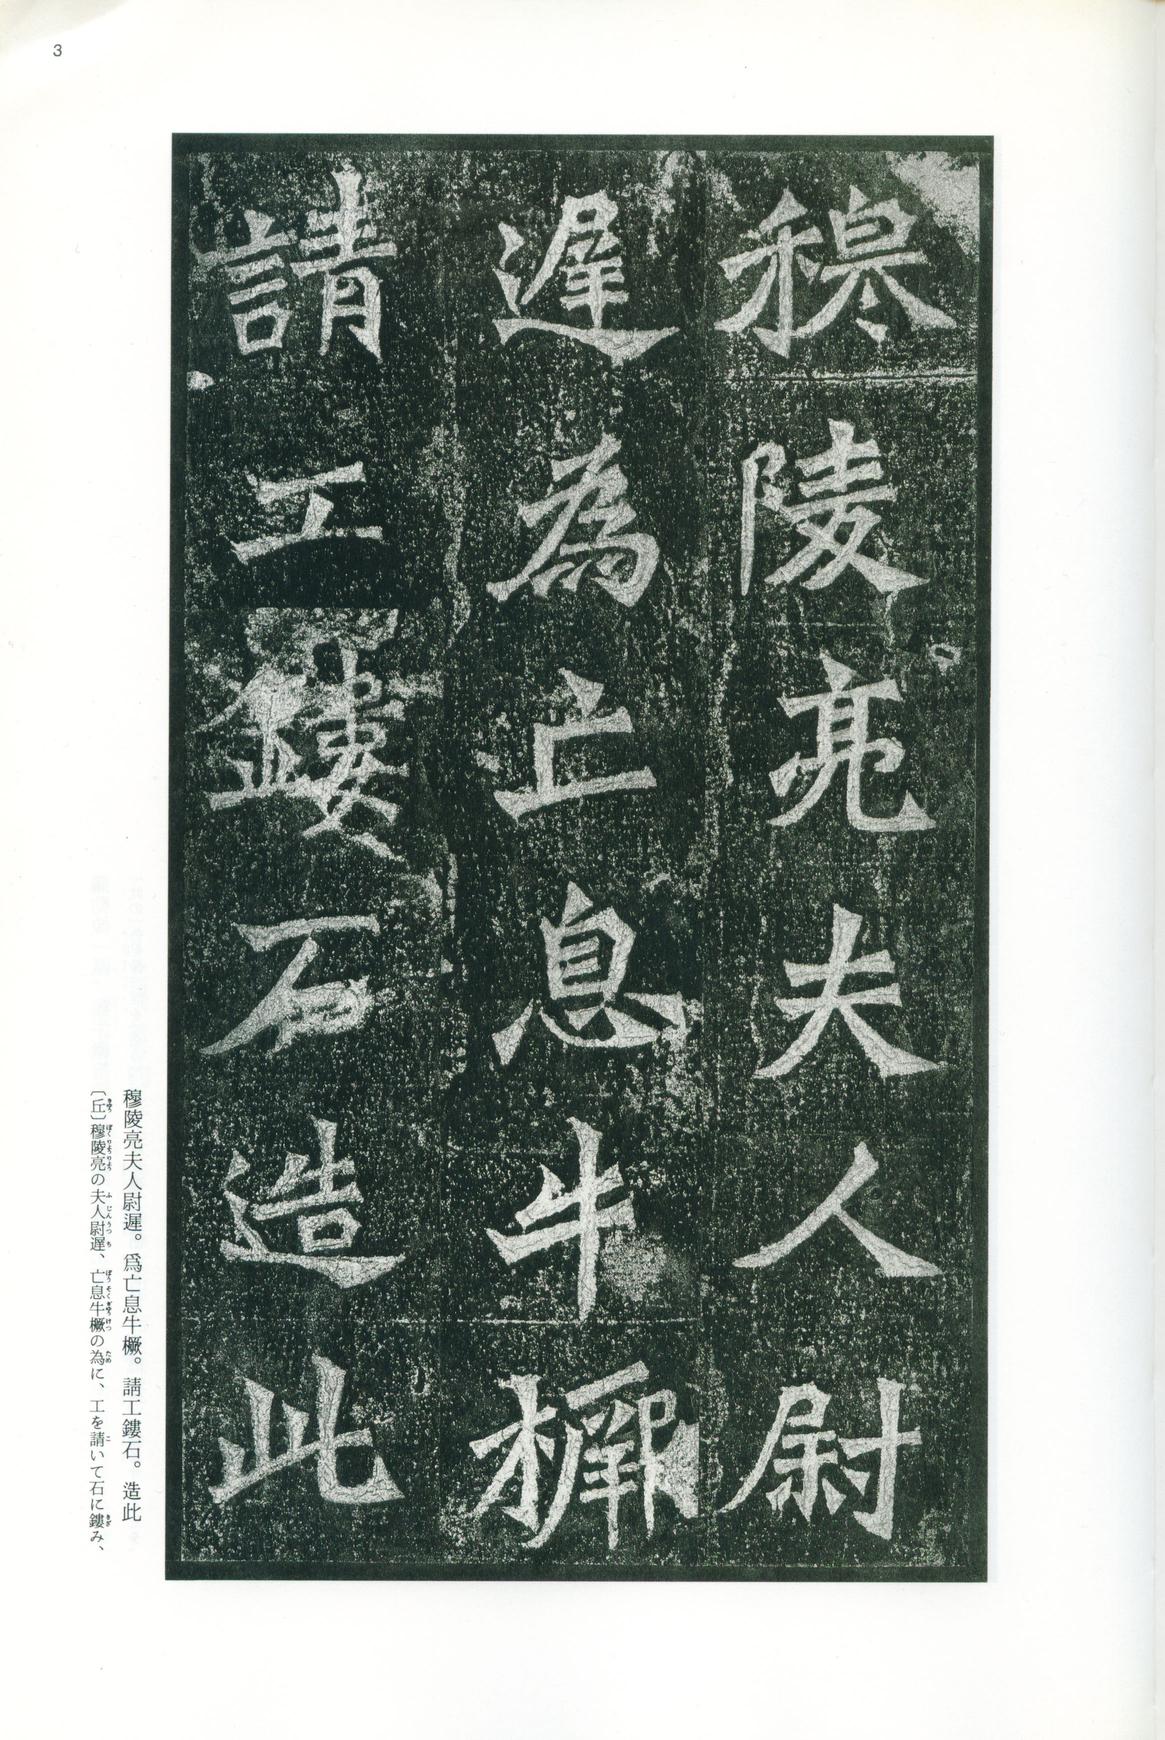 3
穆陵亮夫人尉
遲為亡息牛橛
請工鏤石造此
穆陵亮夫人尉遲。爲亡息牛橛。請工鏤石。造此
〔丘〕穆陵亮の夫人尉遲、亡息牛橛の為に、工を請いて石に鏤み、